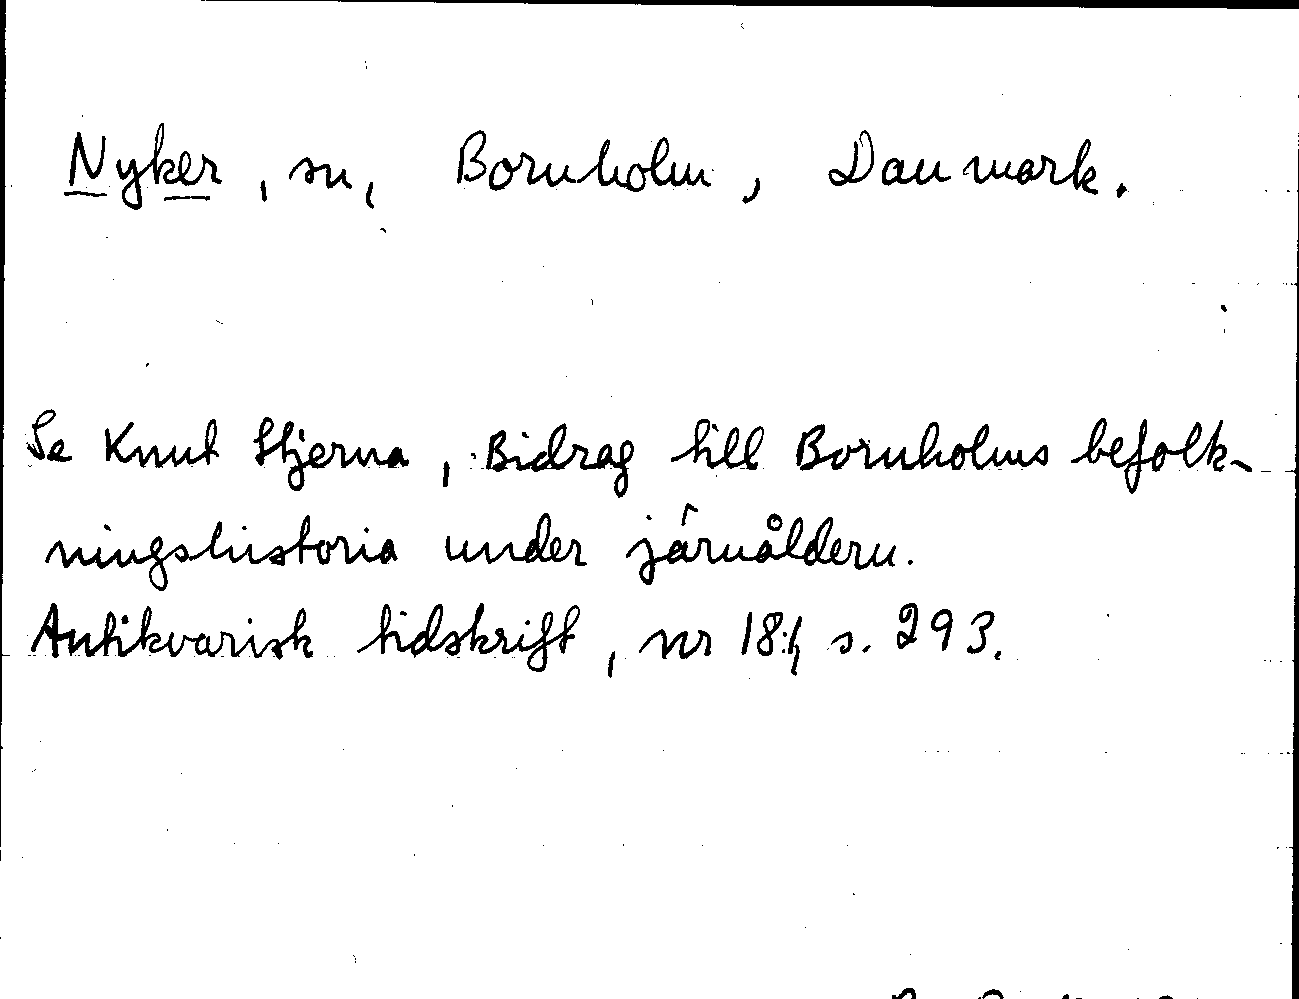 Nyker, sn, Bornholm, Danmark.
Se Knut Stjerna, Bidrag till Bornholms befolk-
ningshistoria under järnåldern.
Antikvarisk tidskrift, nr 18:1, s. 293.